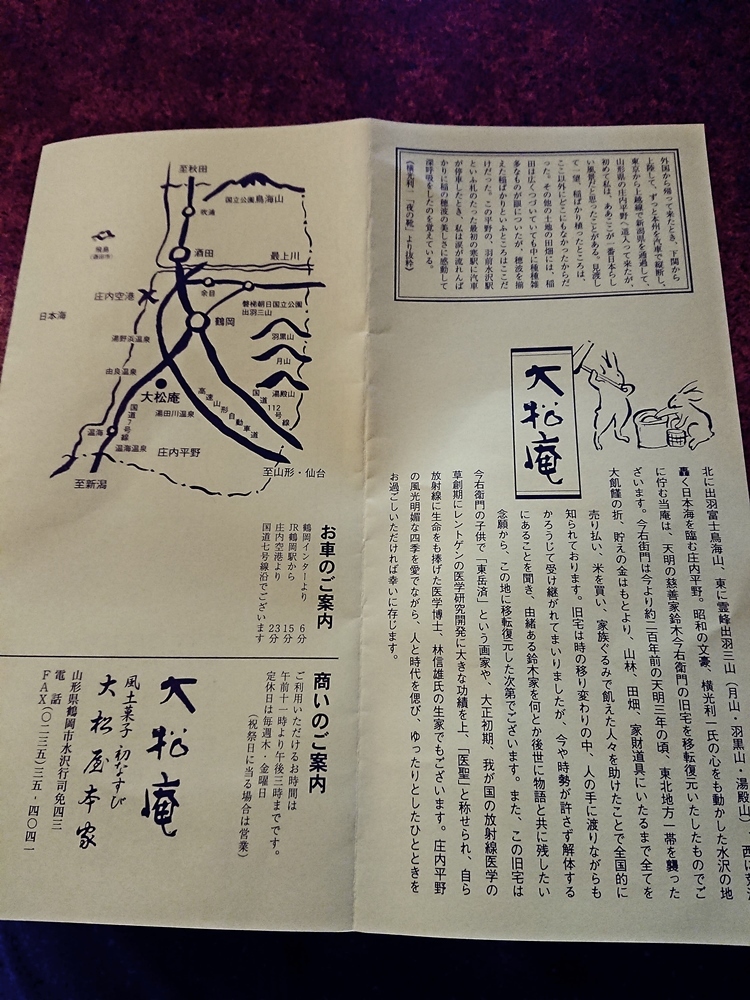 外国から帰って来たとき、下関から
上陸して、ずっと本州を汽車で縦断し、
東京から上越線で新潟県を通過して、
山形県の庄内平野へ這入って来たが、
初めて私は、ああここが一番日本らし
い風景だと思ったことがある。見渡し
て一望、稲ばかり植ったところは、
ここ以外にどこにもなかったからだ
った。その他の土地の田畑には、稲
田は広くつづいていても中に種種雑
多なものが眼についたが、穂波を揃
えた稲ばかりといふところはここだ
けだった。この平野の、羽前水沢駅
といふ札のたった最初の寒駅に汽車
が停車したとき、私は涙が流れんば
かりに稲の穂波の美しさに感動して
深呼吸をしたのを覚えている。
《横光利一「夜の靴」より抜粋》
大松庵
北に出羽富士鳥海山、東に霊峰出羽三山（月山・羽黒山・湯殿山）、西に
轟く日本海を臨む庄内平野。昭和の文豪、横光利一氏の心をも動かした水沢の地
に佇む当庵は、天明の慈善家鈴木今右衛門の旧宅を移転復元いたしたものでご
ざいます。今右衛門は今より約二百年前の天明三年の頃、東北地方一帯を襲った
大飢饉の折、貯えの金はもとより、山林、田畑、家財道具にいたるまで全てを
売り払い、米を買い、家族ぐるみで飢えた人々を助けたことで全国的に
知られております。旧宅は時の移り変わりの中、人の手に渡りながらも
かろうじて受け継がれてまいりましたが、今や時勢が許さず解体する
にあることを聞き、由緒ある鈴木家を何とか後世に物語と共に残したい
念願から、この地に移転復元した次第でございます。また、この旧宅は
今右衛門の子供で「東岳済」という画家や、大正初期、我が国の放射線医学の
草創期にレントゲンの医学研究開発に大きな功績を上、「医聖」と称せられ、自ら
放射線に生命をも捧げた医学博士、林信雄氏の生家でもございます。庄内平野
の風光明媚な四季を愛でながら、人と時代を偲び、ゆったりとしたひとときを
お過ごしいただければ幸いに存じます。
至秋田
国立公園鳥海山
吹浦
飛島
(酒田市)
酒田
最上川
庄内空港
余目
磐梯朝日国立公園
出羽三山
日本海
鶴岡
羽黒山
湯野浜温泉
月山
由良温泉
湯殿山
大松庵
国道112号線
国道7号線
湯田川温泉
高速山形自動車道
温海
温海温泉
庄内平野
至新潟
至山形・仙台
お車のご案内
鶴岡インターより 6分
JR鶴岡駅から 15分
庄内空港より 23分
国道七号線沿でございます
商いのご案内
ご利用いただけるお時間は
午前十一時より午後三時までです。
定休日は毎週木・金曜日
（祝祭日に当る場合は営業）
大松庵
風土菓子 初なすび
大松屋本家
山形県鶴岡市水沢行司免四三
電話
FAX〇二三五‐三五‐四〇四一